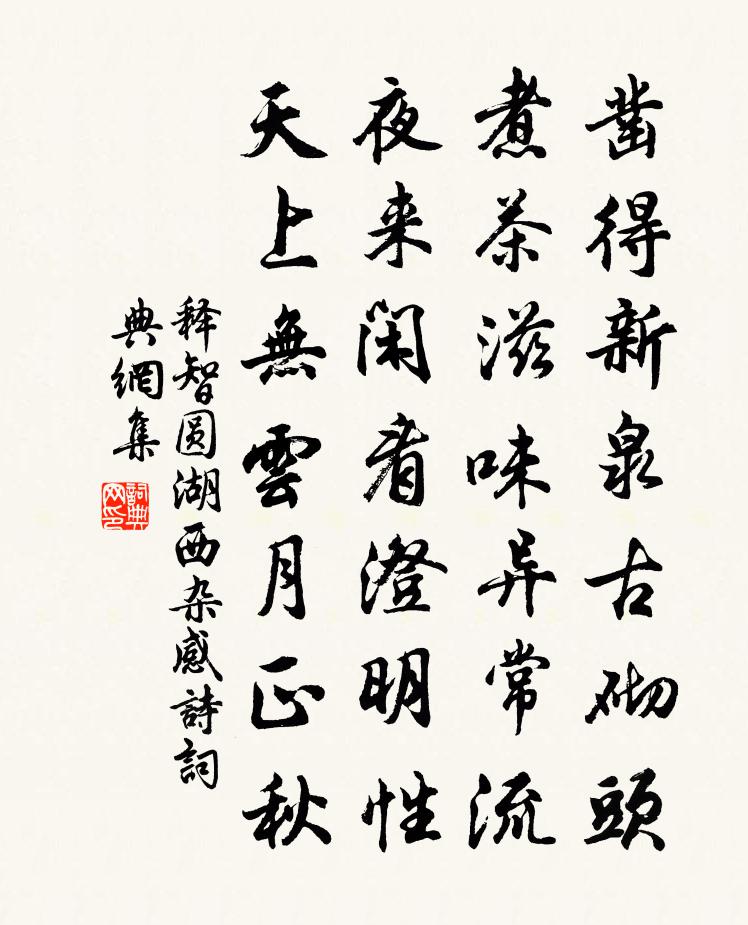 凿得新泉古砌頭
煮茶滋味异常流
夜来闲看澄明性
天上無雲月正秋
释智圆湖西杂感詩詞
典網集
詞典网印